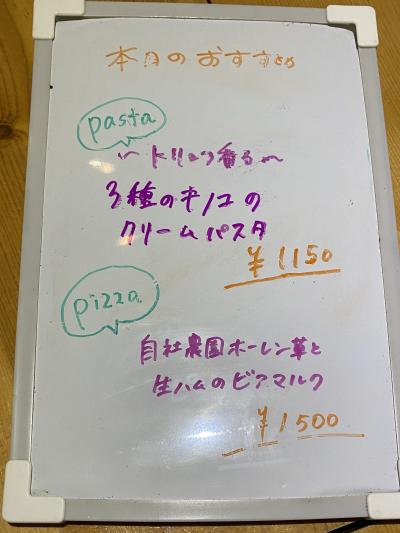 本日のおすすめ
pasta
～トリュフ香る～
3種のキノコの
クリームパスタ
¥1150
pizza
自社農園ホーレン草と
生ハムのビアマルク
¥1500